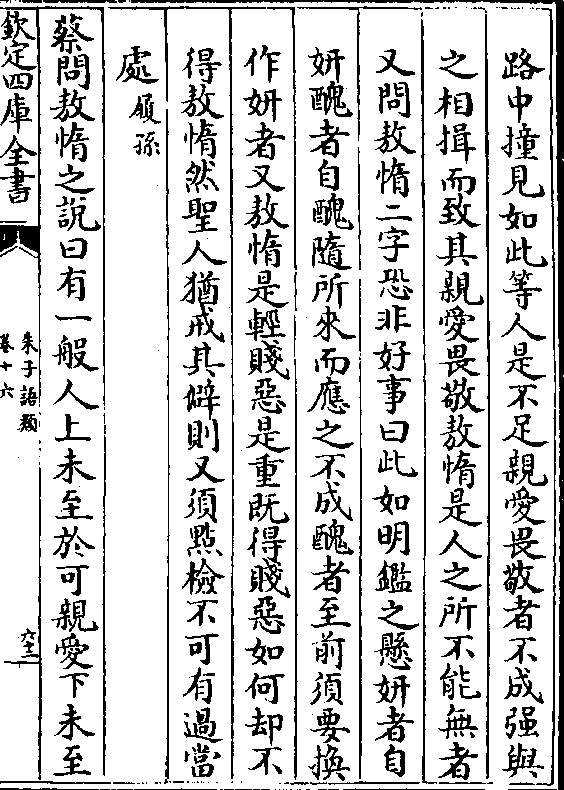 路中撞見如此等人是不足親愛畏敬者不成强與
之相揖而致其親愛畏敬敖惰是人之所不能無者
又問敖惰二字恐非好事曰此如明鑑之懸妍者自
妍醜者自醜隨所來而應之不成醜者至前須要換
作妍者又敖惰是輕賤惡是重既得賤惡如何却不
得敖惰然聖人猶戒其僻則又須點檢不可有過當
處履孫
蔡問敖惰之說曰有一般人上未至於可親愛下未至
欽定四庫全書
朱子語類
卷十六
六三